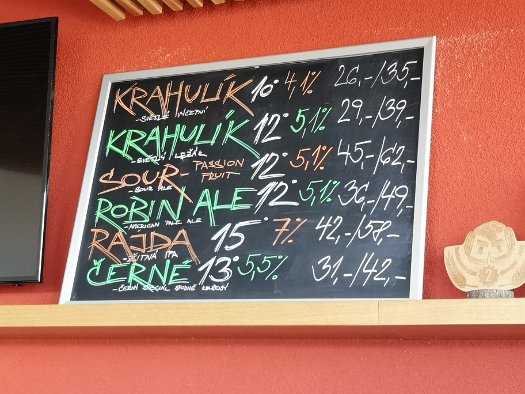 KRAHULÍK 10° 4,1% 26,-/35,-
-SVĚTLÉ VÝČEPNÍ
KRAHULÍK 12° 5,1% 29,-/39,-
-SVĚTLÝ LEŽÁK
SOUR - PASSION FRUIT 12° 5,1% 45,-/62,-
-SOUR ALE
ROBIN ALE 12° 5,1% 36,-/49,-
-AMERICAN PALE ALE
RAJDA 15° 7% 42,-/58,-
-ŽITNÁ IPA
ČERNÉ 13° 5,5% 31,-/42,-
-ČERNÝ SPECIÁL SPODNĚ KVAŠENÝ
2